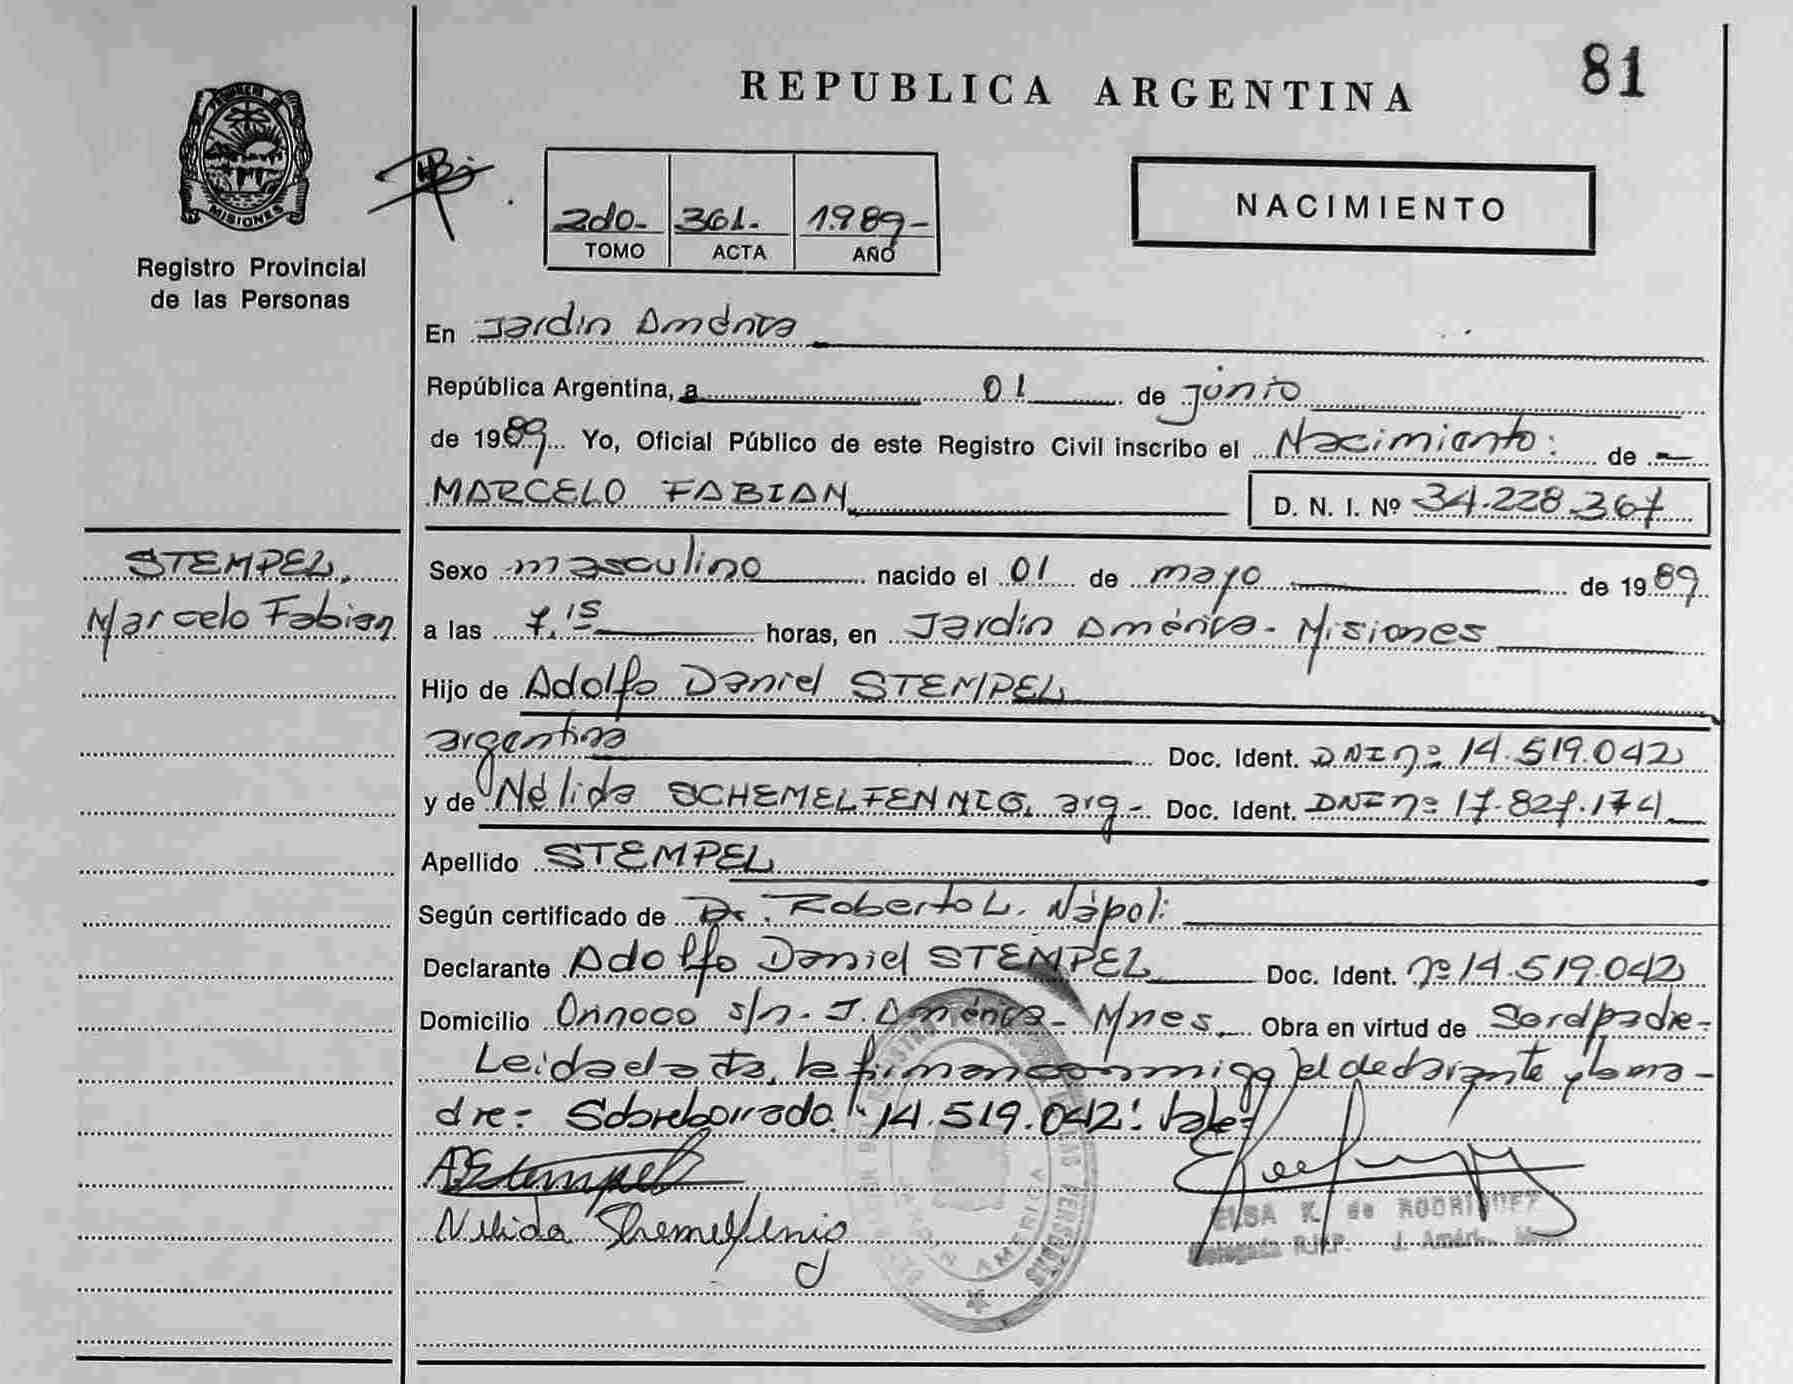 81
REPUBLICA ARGENTINA
MISIONES
Registro Provincial
de las Personas
2do- 361- 1.989-
TOMO ACTA AÑO
NACIMIENTO
En Jardín América
República Argentina, a 01 de junio
de 1989 Yo, Oficial Público de este Registro Civil inscribo el Nacimiento: de -
MARCELO FABIAN D. N. I. Nº 34.228.367
STEMPEL,
Marcelo Fabian
Sexo masculino nacido el 01 de mayo de 1989
a las 7.15 horas, en Jardín América - Misiones
Hijo de Adolfo Daniel STEMPEL
argentina Doc. Ident. DNI nº 14.519.042
y de Nélida SCHEMELFENNIG, arg- Doc. Ident. DNI nº 17.827.174
Apellido STEMPEL
Según certificado de Dr. Roberto L. Nápoli
Declarante Adolfo Daniel STEMPEL Doc. Ident. nº 14.519.042
Domicilio Orinoco s/n - J. América - Mnes. Obra en virtud de Ser el padre-
Leida el acta, la firman conmigo el declarante y la ma-
dre= Sobreborrado: "14.519.042": Vale=
AStempel
Nelida Shemelfenig
ELSA K. de RODRIGUEZ
Delegada R.P.P. J. Améric. Mnes.
JARDIN AMERICA